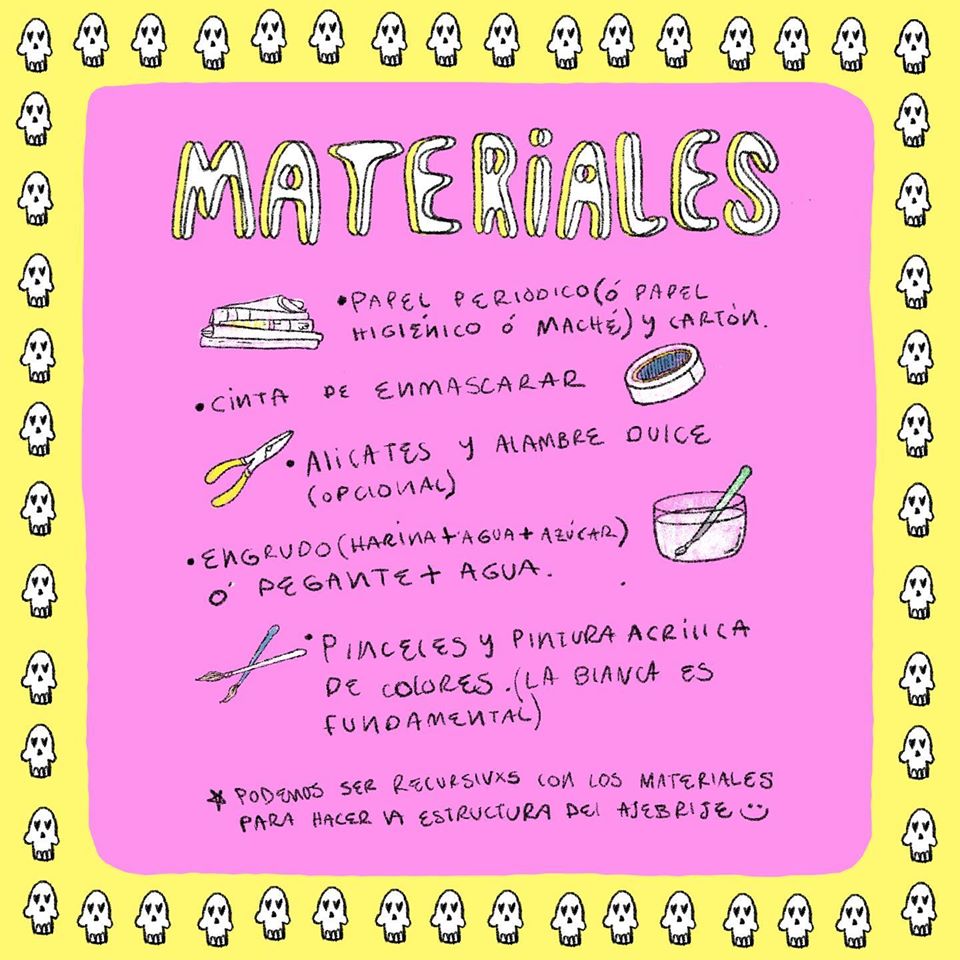 MATERIALES
•PAPEL PERIODICO (Ó PAPEL
HIGIÉNICO Ó MACHÉ) y CARTÓN.
•CINTA DE ENMASCARAR
•ALICATES Y ALAMBRE DULCE
(OPCIONAL)
•ENGRUDO (HARINA + AGUA + AZÚCAR)
Ó PEGANTE + AGUA.
•PINCELES y PINTURA ACRILICA
DE COLORES. (LA BLANCA ES
FUNDAMENTAL)
* PODEMOS SER RECURSIVXS CON LOS MATERIALES
PARA HACER LA ESTRUCTURA DEL AJEBRIJE :)